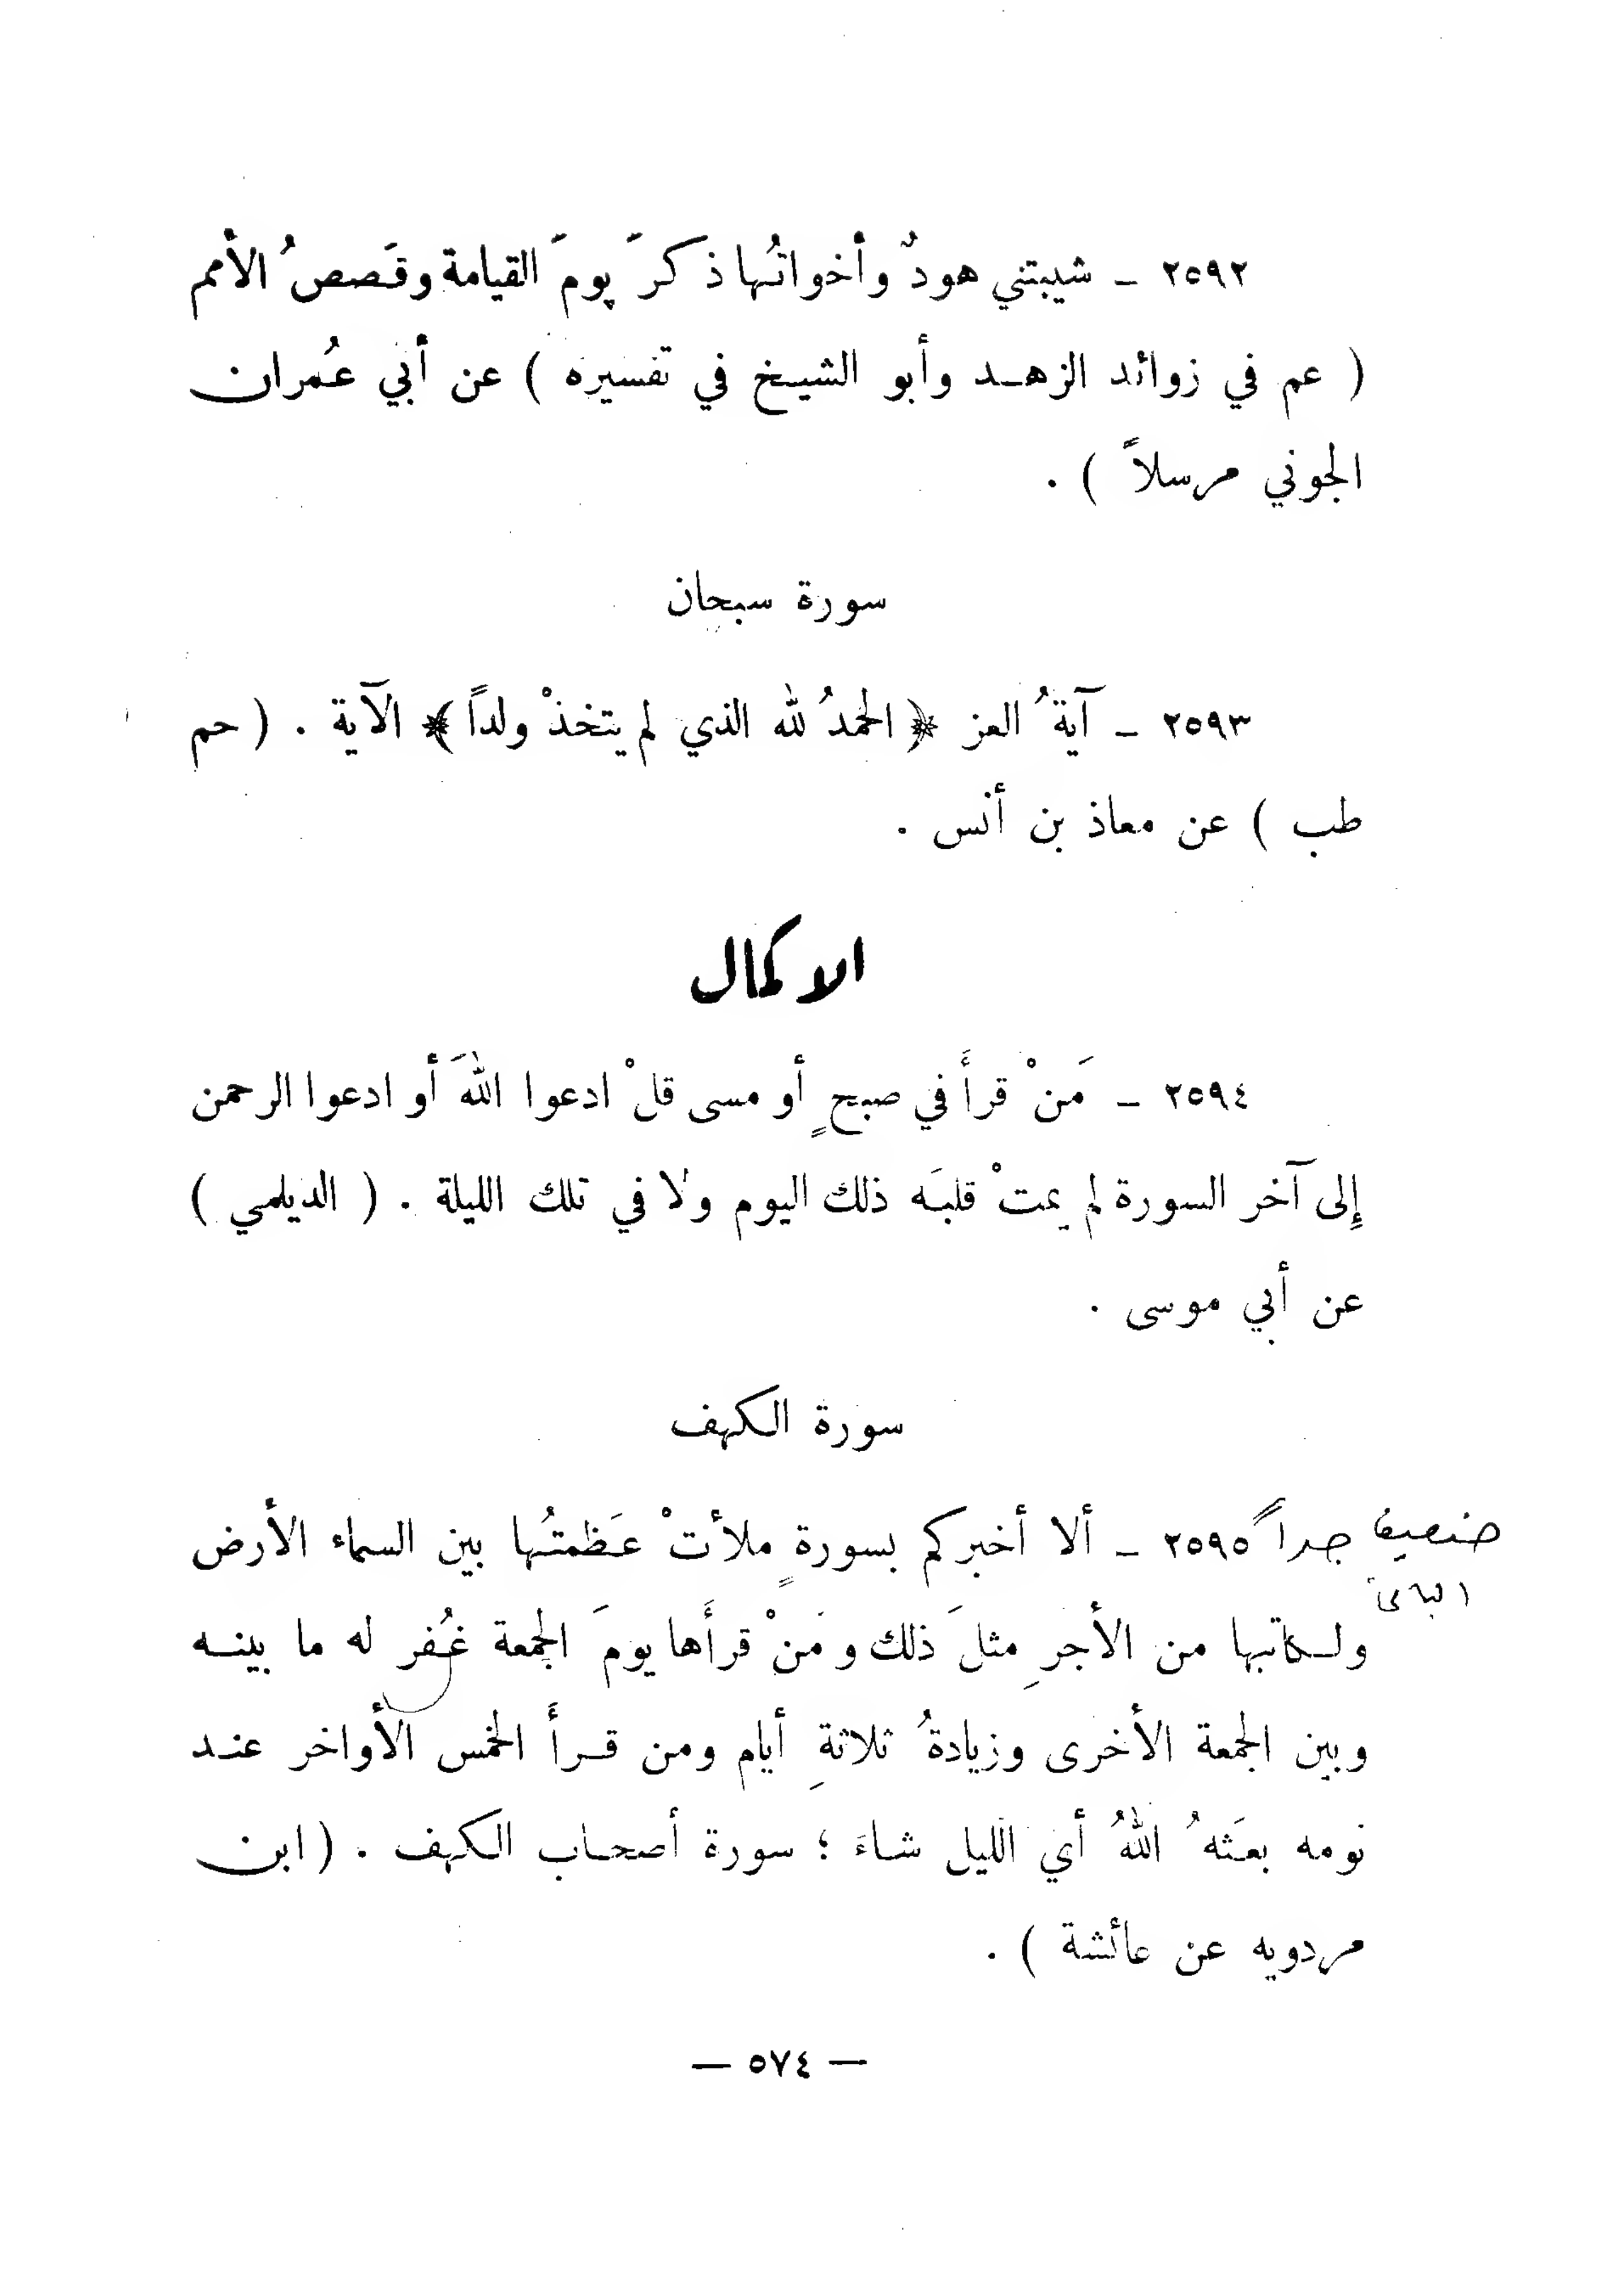 ٢٥٩٢ ــ شيبتني هودٌ وأخواتُها ذكرَ يومَ القيامة وقَصصُ الأمم
( عم في زوائد الزهـد وأبو الشيـخ في تفسيره ) عن أبي عُمران
الجوني مرسلاً ) .
سورة سبحان
٢٥٩٣ ــ آيةُ العز ﴿ الحمدُ لله الذي لم يتخذْ ولداً ﴾ الآية . ( حم
طب ) عن معاذ بن أنس .
الاكمال
٢٥٩٤ ــ مَنْ قرأَ في صبحٍ أو مسى قلْ ادعوا اللهَ أو ادعوا الرحمن
إِلى آخر السورة لم يمتْ قلبَه ذلك اليوم ولا في تلك الليلة . ( الديلمي )
عن أبي موسى .
سورة الكهف
ضعيف جداً ٢٥٩٥ ــ ألا أخبركم بسورةٍ ملأتْ عَظمتُها بين السماء الأرض
ولـكاتبها من الأجرِ مثلَ ذلك ومَنْ قرأَها يومَ الجمعة غُفر له ما بينـه
وبين الجمعة الأخرى وزيادةُ ثلاثةِ أيام ومن قـرأَ الخمس الأواخر عنـد
نومه بعَثهُ اللهُ أي الليل شاءَ ؛ سورة أصحـاب الكهف . ( ابن
مردويه عن عائشة ) .
— ٥٧٤ —